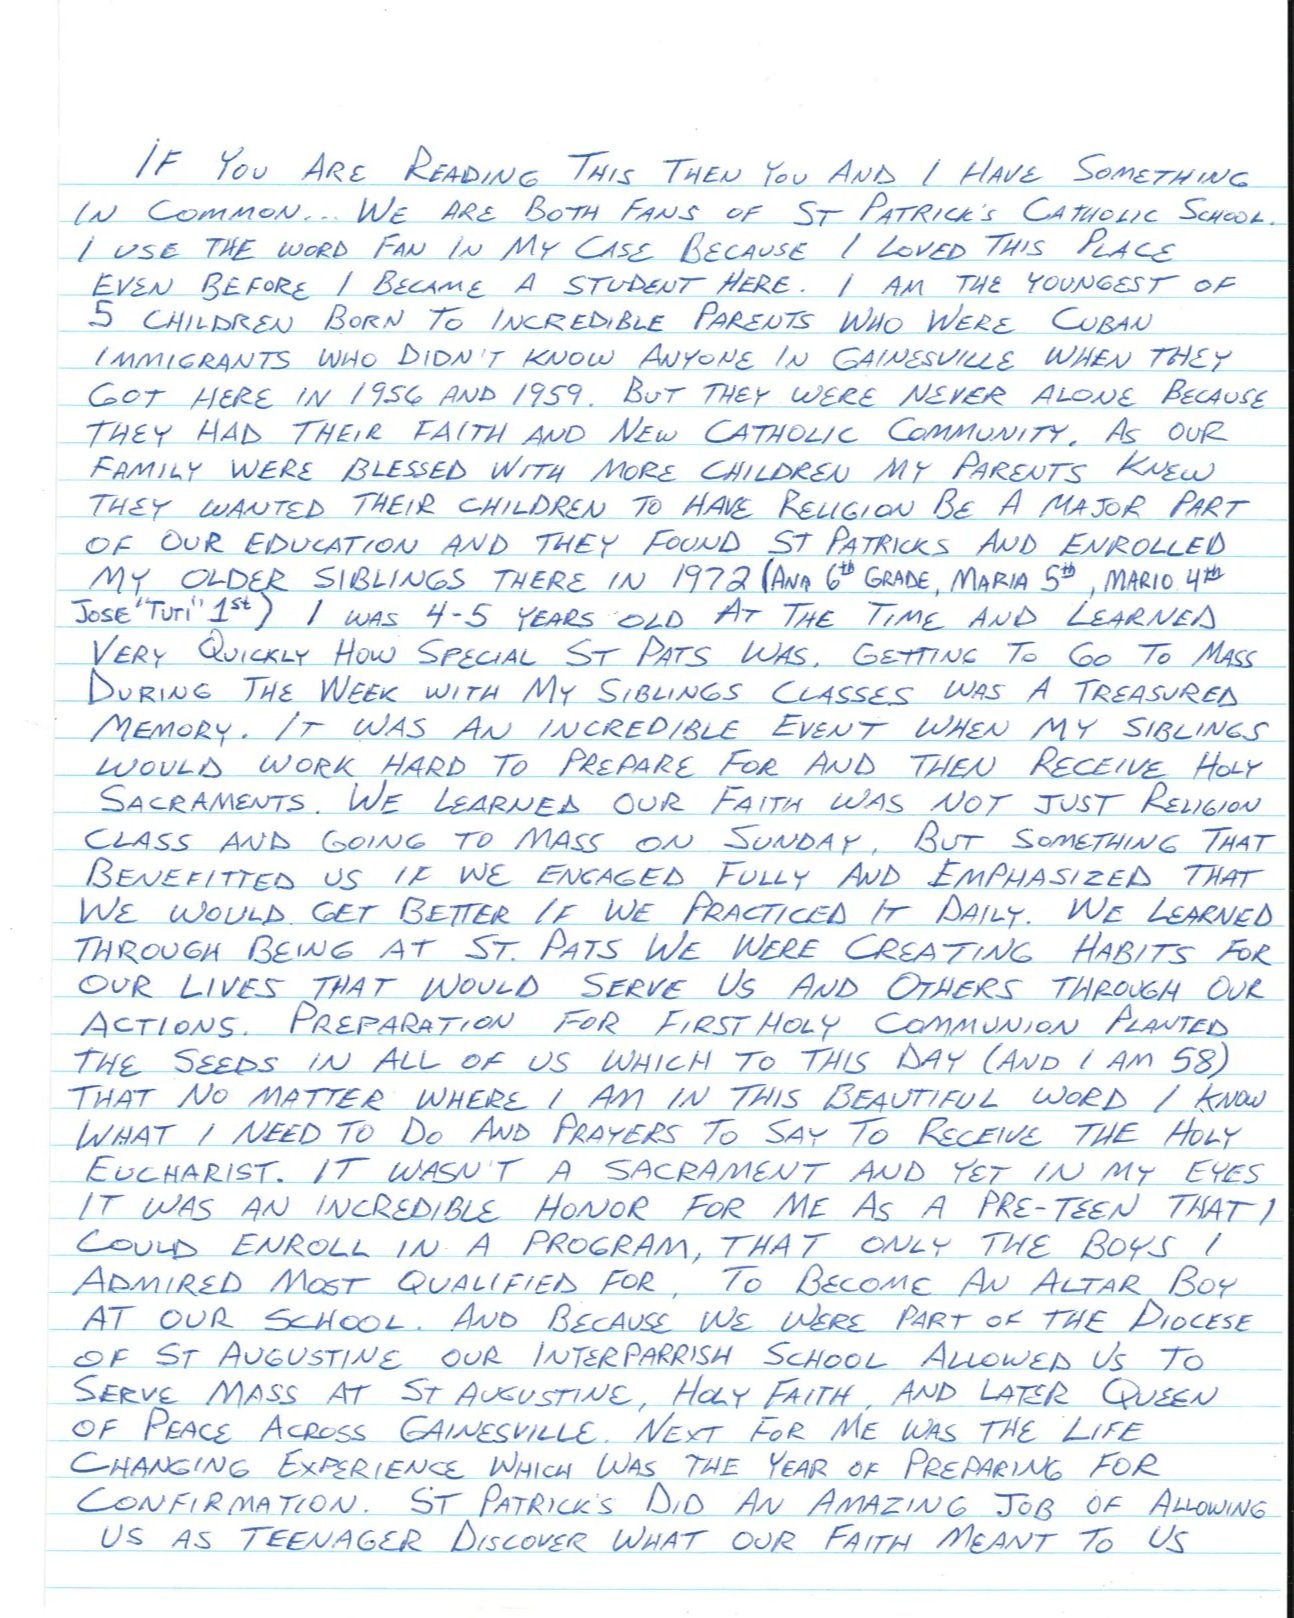 IF YOU ARE READING THIS THEN YOU AND I HAVE SOMETHING
IN COMMON... WE ARE BOTH FANS OF ST PATRICK'S CATHOLIC SCHOOL.
I USE THE WORD FAN IN MY CASE BECAUSE I LOVED THIS PLACE
EVEN BEFORE I BECAME A STUDENT HERE. I AM THE YOUNGEST OF
5 CHILDREN BORN TO INCREDIBLE PARENTS WHO WERE CUBAN
IMMIGRANTS WHO DIDN'T KNOW ANYONE IN GAINESVILLE WHEN THEY
GOT HERE IN 1956 AND 1959. BUT THEY WERE NEVER ALONE BECAUSE
THEY HAD THEIR FAITH AND NEW CATHOLIC COMMUNITY. AS OUR
FAMILY WERE BLESSED WITH MORE CHILDREN MY PARENTS KNEW
THEY WANTED THEIR CHILDREN TO HAVE RELIGION BE A MAJOR PART
OF OUR EDUCATION AND THEY FOUND ST PATRICKS AND ENROLLED
MY OLDER SIBLINGS THERE IN 1972 (ANA 6th GRADE, MARIA 5th, MARIO 4th
JOSE "TUTI" 1st) I WAS 4-5 YEARS OLD AT THE TIME AND LEARNED
VERY QUICKLY HOW SPECIAL ST PATS WAS. GETTING TO GO TO MASS
DURING THE WEEK WITH MY SIBLINGS CLASSES WAS A TREASURED
MEMORY. IT WAS AN INCREDIBLE EVENT WHEN MY SIBLINGS
WOULD WORK HARD TO PREPARE FOR AND THEN RECEIVE HOLY
SACRAMENTS. WE LEARNED OUR FAITH WAS NOT JUST RELIGION
CLASS AND GOING TO MASS ON SUNDAY, BUT SOMETHING THAT
BENEFITTED US IF WE ENGAGED FULLY AND EMPHASIZED THAT
WE WOULD GET BETTER IF WE PRACTICED IT DAILY. WE LEARNED
THROUGH BEING AT ST. PATS WE WERE CREATING HABITS FOR
OUR LIVES THAT WOULD SERVE US AND OTHERS THROUGH OUR
ACTIONS. PREPARATION FOR FIRST HOLY COMMUNION PLANTED
THE SEEDS IN ALL OF US WHICH TO THIS DAY (AND I AM 58)
THAT NO MATTER WHERE I AM IN THIS BEAUTIFUL WORD I KNOW
WHAT I NEED TO DO AND PRAYERS TO SAY TO RECEIVE THE HOLY
EUCHARIST. IT WASN'T A SACRAMENT AND YET IN MY EYES
IT WAS AN INCREDIBLE HONOR FOR ME AS A PRE-TEEN THAT I
COULD ENROLL IN A PROGRAM, THAT ONLY THE BOYS I
ADMIRED MOST QUALIFIED FOR, TO BECOME AN ALTAR BOY
AT OUR SCHOOL. AND BECAUSE WE WERE PART OF THE DIOCESE
OF ST AUGUSTINE OUR INTERPARRISH SCHOOL ALLOWED US TO
SERVE MASS AT ST AUGUSTINE, HOLY FAITH, AND LATER QUEEN
OF PEACE ACROSS GAINESVILLE. NEXT FOR ME WAS THE LIFE
CHANGING EXPERIENCE WHICH WAS THE YEAR OF PREPARING FOR
CONFIRMATION. ST PATRICK'S DID AN AMAZING JOB OF ALLOWING
US AS TEENAGER DISCOVER WHAT OUR FAITH MEANT TO US